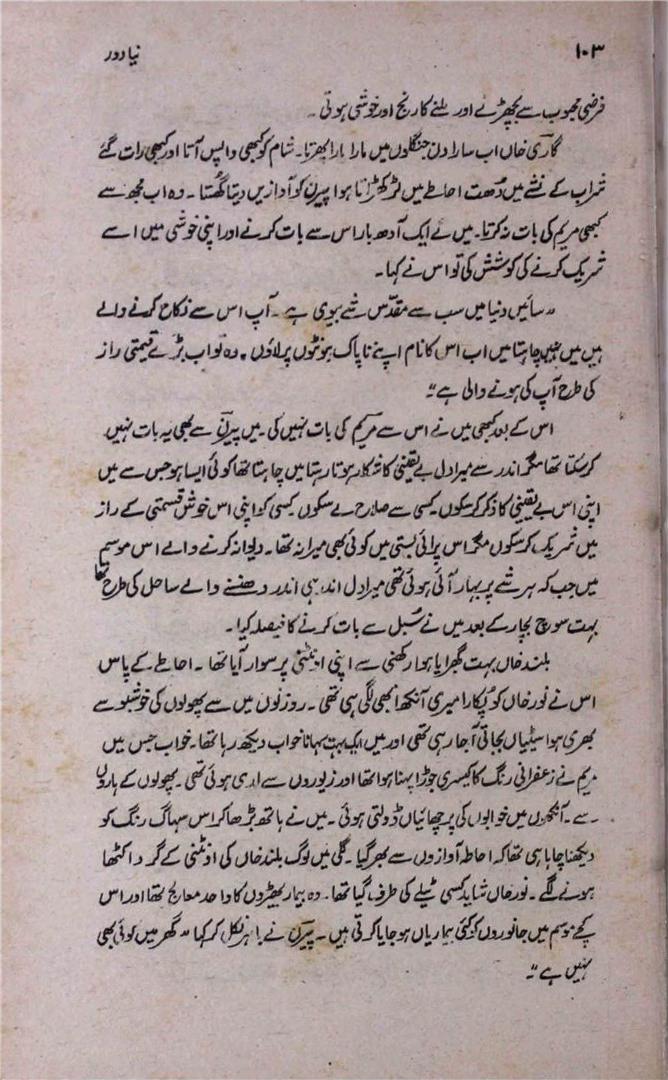 ۱۰۳ نیا دور
فرضی محبوب سے بچھڑنے اور ملنے کا رنج اور خوشی ہوتی۔
گاری خاں اب سارا دن جنگلوں میں مارا مارا پھرتا۔ شام کو کبھی واپس آتا اور کبھی رات گئے
شراب کے نشے میں دُھت احاطے میں لڑکھڑاتا ہوا پیرن کو آوازیں دیتا گھستا۔ وہ اب مجھ سے
کبھی مریم کی بات نہ کرتا۔ میں نے ایک آدھ بار اس سے بات کرنے اور اپنی خوشی میں اسے
شریک کرنے کی کوشش کی تو اس نے کہا۔
"سائیں دنیا میں سب سے مقدس شے بیوی ہے۔ آپ اس سے نکاح کرنے والے
ہیں میں نہیں چاہتا میں اب اس کا نام اپنے ناپاک ہونٹوں پر لاؤں۔ وہ تو اب بڑے قیمتی راز
کی طرح آپ کی ہونے والی ہے"
اس کے بعد کبھی میں نے اس سے مریم کی بات نہیں کی۔ میں پیرن سے بھی یہ بات نہیں
کر سکتا تھا مگر اندر سے میرا دل بے یقینی کا شکار ہوتا رہتا میں چاہتا تھا کوئی ایسا ہو جس سے میں
اپنی اس بے یقینی کا ذکر کر سکوں کسی سے صلاح لے سکوں کسی کو اپنی اس خوش قسمتی کے راز
میں شریک کر سکوں مگر اس پرائی بستی میں کوئی بھی میرا نہ تھا۔ دیوانہ کرنے والے اس موسم
میں جب کہ ہر شے پر بہار آئی ہوئی تھی میرا دل اندر ہی اندر دھنسنے والے ساحل کی طرح تھا
بہت سوچ بچار کے بعد میں نے سُبل سے بات کرنے کا فیصلہ کیا۔
بلند خاں بہت گھبرایا ہوا رکھنی سے اپنی اونٹنی پر سوار آیا تھا۔ احاطے کے پاس
اس نے نور خاں کو پکارا میری آنکھ ابھی لگی ہی تھی۔ روزنوں میں سے پھولوں کی خوشبو سے
بھری ہوا سیٹیاں بجاتی آ جا رہی تھی اور میں ایک بہت سہانا خواب دیکھ رہا تھا۔ خواب جس میں
مریم نے زعفرانی رنگ کا کیسری جوڑا پہنا ہوا تھا اور زیوروں سے لدی ہوئی تھی۔ پھولوں کے ہاروں
سے۔ آنکھوں میں خوابوں کی پرچھائیاں ڈولتی ہوئی۔ میں نے ہاتھ بڑھا کر اس سہاگ رنگ کو
دیکھنا چاہا ہی تھا کہ احاطہ آوازوں سے بھر گیا۔ گلی میں لوگ بلند خاں کی اونٹنی کے گرد اکٹھا
ہونے لگے۔ نور خاں شاید کسی ٹیلے کی طرف گیا تھا۔ وہ بیمار بھیڑوں کا واحد معالج تھا اور اس
کچے موسم میں جانوروں کو کئی بیماریاں ہو جایا کرتی ہیں۔ پیرن نے باہر نکل کر کہا "گھر میں کوئی بھی
نہیں ہے"